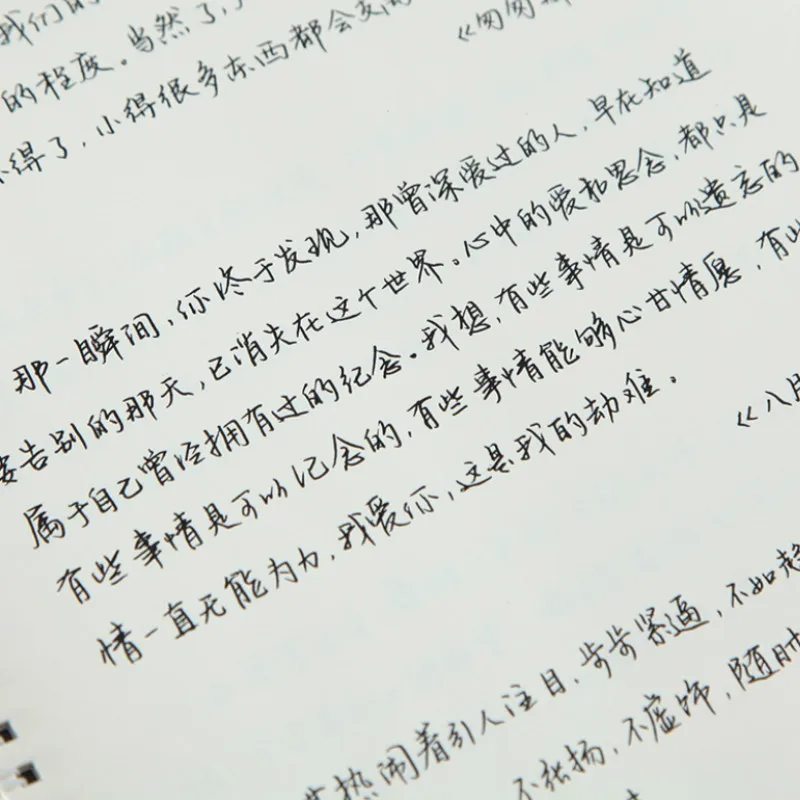 我们的
的程度。当然了,
《匆匆那
不得了,小得很多东西都会
那一瞬间,你终于发现,那曾深爱过的人,早在知道
要告别的那天,已消失在这个世界。心中的爱和思念,都只是
属于自己曾经拥有过的纪念。我想,有些事情是可以遗忘的
有些事情是可以记念的,有些事情能够心甘情愿,有些
情一直无能为力,我爱你,这是我的劫难。
《八月
热闹着引人注目,步步紧逼,不如趁
不张扬,不虚饰,随时